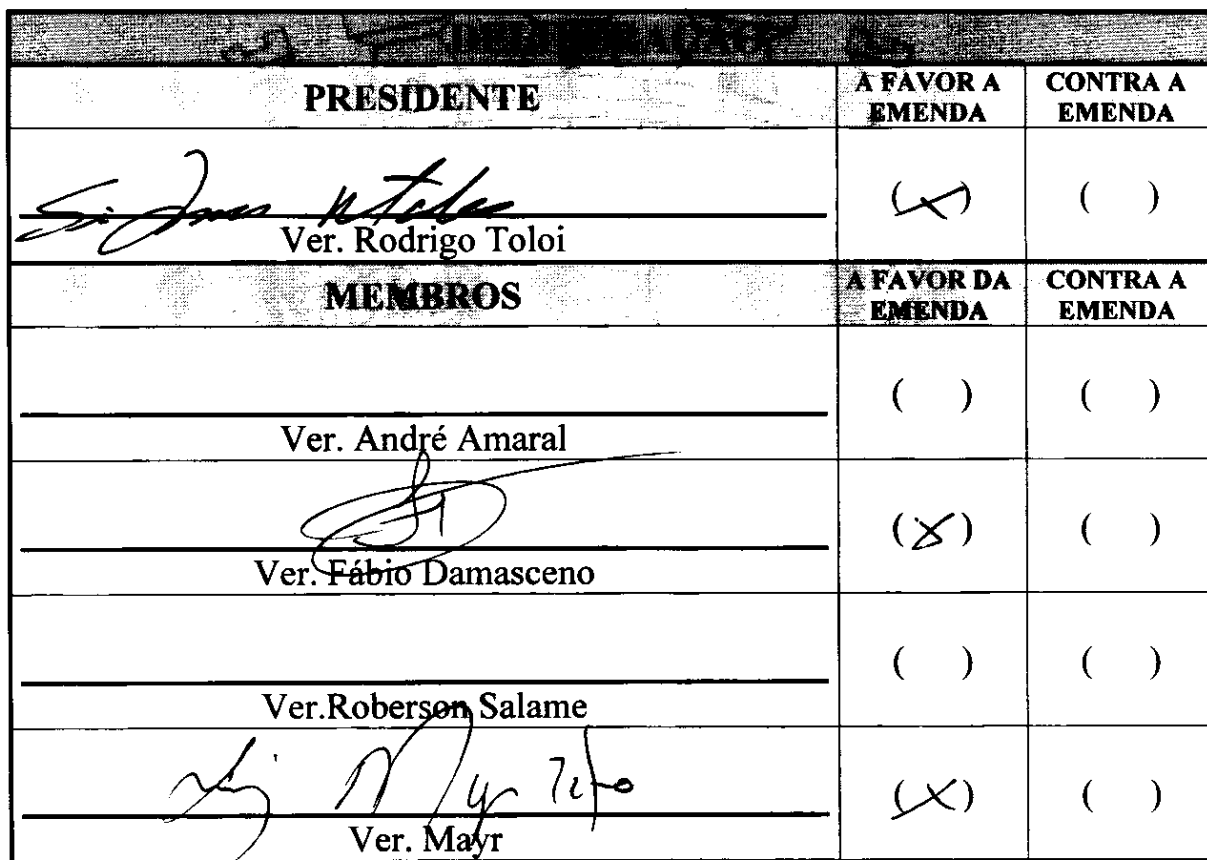 PRESIDENTE A FAVOR A CONTRA A
EMENDA EMENDA
(X) ( )
Ver. Rodrigo Toloi
MEMBROS A FAVOR DA CONTRA A
EMENDA EMENDA
( ) ( )
Ver. André Amaral
(X) ( )
Ver. Fábio Damasceno
( ) ( )
Ver.Roberson Salame
(X) ( )
Ver. Mayr